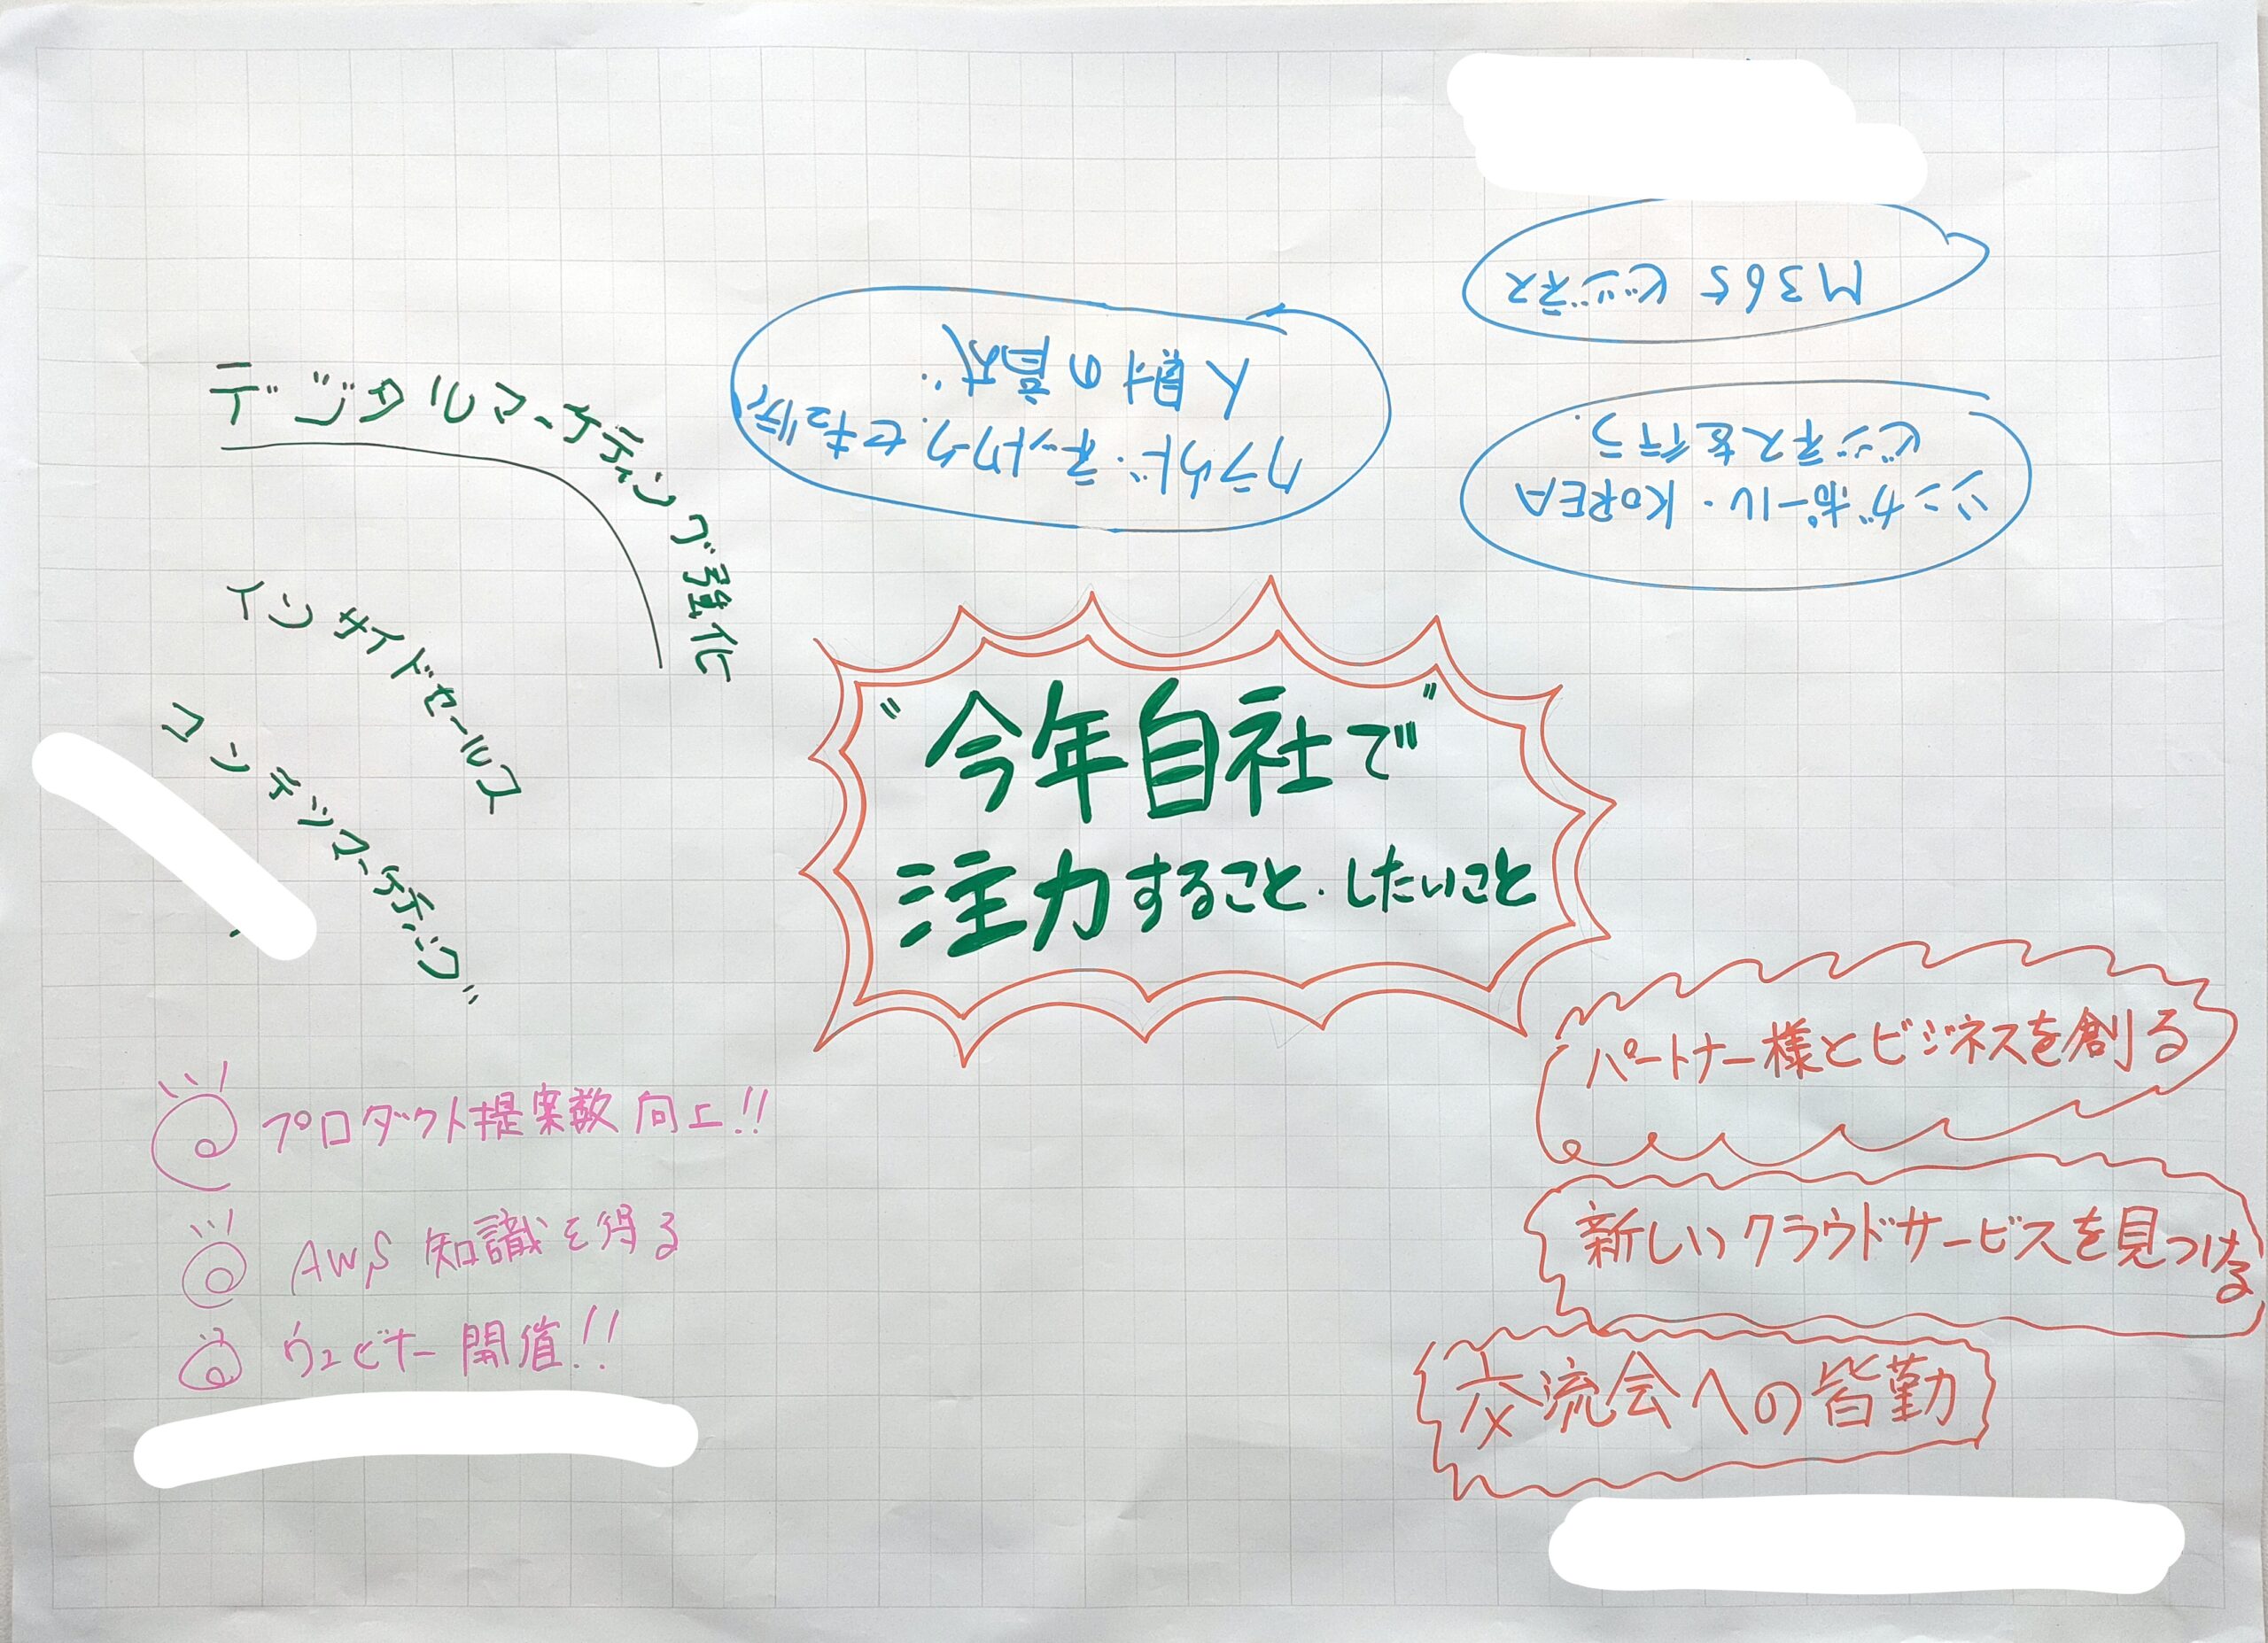 “今年自社で”
注力すること・したいこと
デジタルマーケティング強化
インサイドセールス
コンテンツマーケティング
クラウド・ネットワーク・セキュリティ
人財の育成
M365 ビジネス
シンガポール・KOREA
ビジネスを行う
プロダクト提案数 向上!!
AWS 知識を得る
ウェビナー 開催!!
パートナー様とビジネスを創る
新しいクラウドサービスを見つける
交流会への皆勤